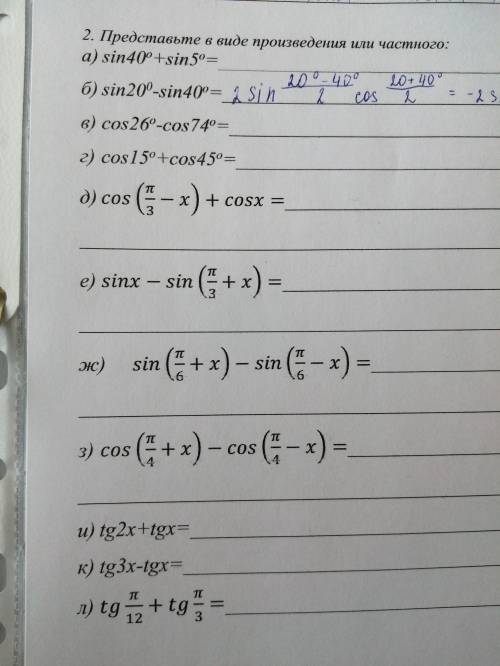 2. Представьте в виде произведения или частного:
а) sin40º+sin5º=
б) sin20º-sin40º= 2 sin (20º-40º)/2 cos (20+40º)/2 = -2 s
в) cos26º-cos74º=
г) cos15º+cos45º=
д) cos(π/3 − x) + cosx =
е) sinx − sin(π/3 + x) =
ж) sin(π/6 + x) − sin(π/6 − x) =
з) cos(π/4 + x) − cos(π/4 − x) =
и) tg2x+tgx=
к) tg3x-tgx=
л) tg π/12 + tg π/3 =